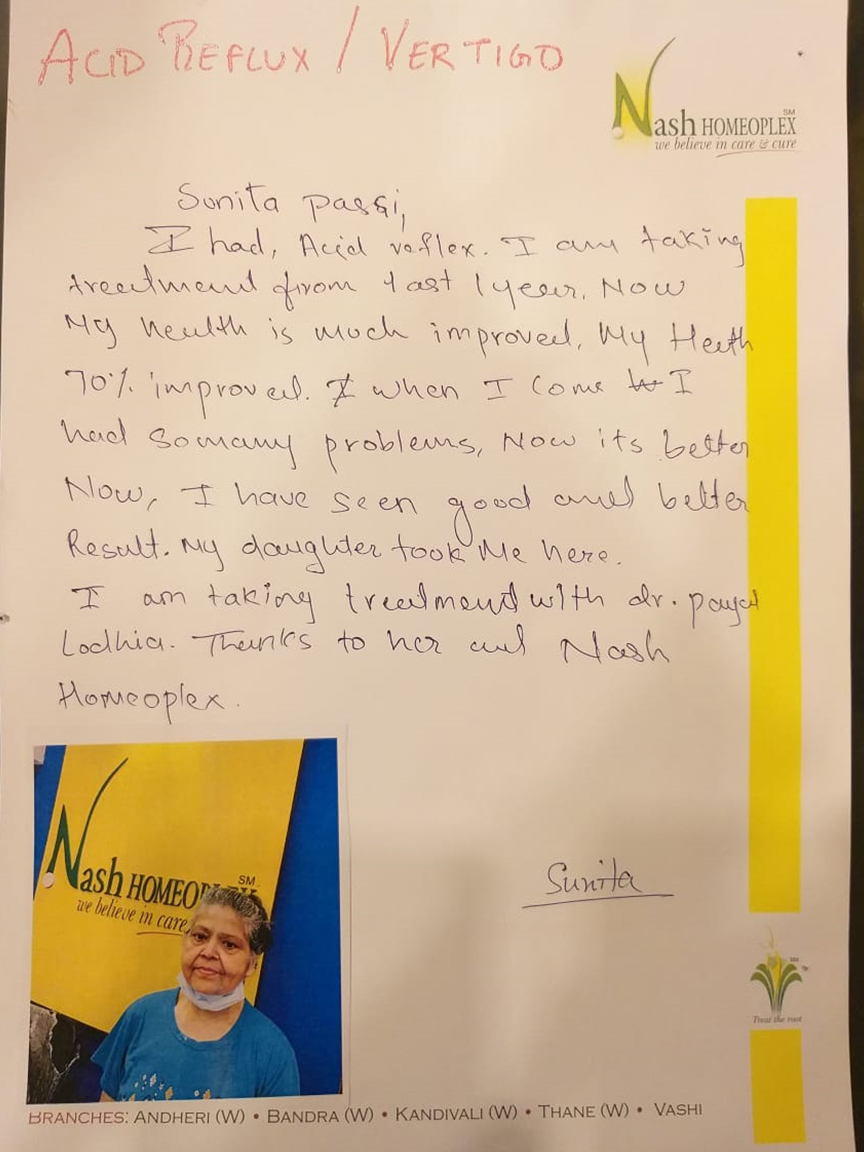 ACID REFLUX / VERTIGO
Nash HOMEOPLEX SM
we believe in care & cure
Sunita passi,
I had, Acid reflex. I am taking
treetment from last 1 year. Now
My health is much improved. My Heeth
70% improved. I when I come W I
had somany problems, Now its better
Now, I have seen good and better
Result. My daughter took Me here.
I am taking treetment with dr. payal
Lodhia. Thanks to her and Nash
Homeoplex.
Nash HOMEOPLEX SM
we believe in care
Sunita
Treat the root
BRANCHES: ANDHERI (W) • BANDRA (W) • KANDIVALI (W) • THANE (W) • VASHI